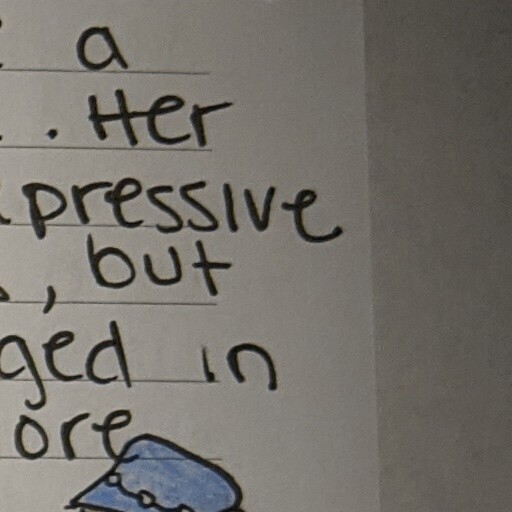 a
. Her
pressive
, but
ged in
ore